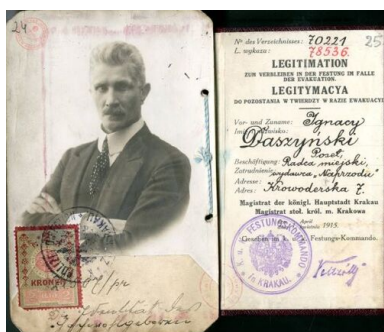 24
KRONEN
Identität des
No des Verzeichnisses: 70221
L. wykazu: 78536.
25
LEGITIMATION
ZUM VERBLEIBEN IN DER FESTUNG IM FALLE
DER EVAKUATION.
LEGITYMACYA
DO POZOSTANIA W TWIERDZY W RAZIE EWAKUACYI
Vor- und Zuname: Ignacy
Daszyński
Beschäftigung: Poseł,
Zatrudnienie: Radca miejski,
wydawca „Naprzodu”
Adresse:
Adres: Krowoderska 7.
Magistrat der königl. Hauptstadt Krakau
Magistrat stoł. król. m. Krakowa
April
1915.
Gesehen k. u. k. Festungs-Kommando.
K. u. k. FESTUNGSKOMMANDO
in KRAKAU